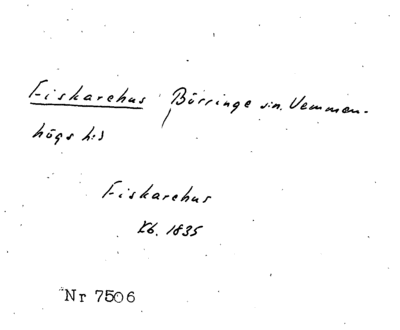 Fiskarehus Börringe sn. Vemmen-
högs hd
Fiskarehus
Kb. 1835
Nr 7506